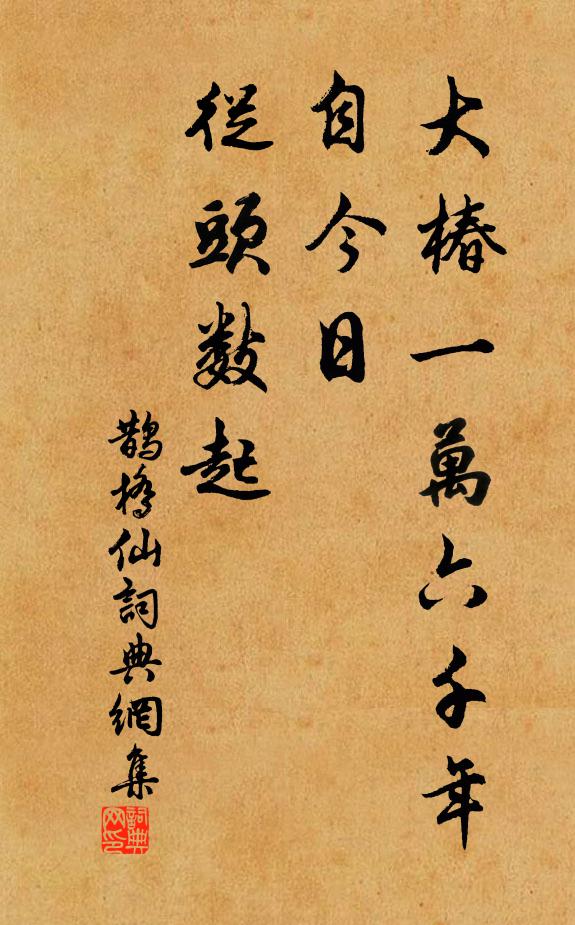 大椿一萬六千年
自今日
從頭數起
鵲橋仙詞典網集
詞典网印